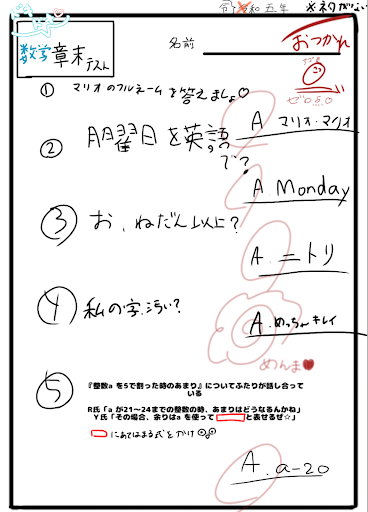 令和五年
※ネタがない
数学章末テスト
名前
おつかれ
ゼロ点
① マリオのフルネームを答えましょ
A マリオ・マリオ
② 月曜日を英語で?
A Monday
③ お、ねだん以上?
A. ニトリ
④ 私の字汚い?
A. めっちゃキレイ
めんま♥
⑤ 『整数a を5で割った時のあまり』についてふたりが話し合って
いる
R氏「a が21〜24までの整数の時、あまりはどうなるんかね」
Y氏「その場合、余りはa を使って と表せるぜ☆」
にあてはまる式をかけ
A. a-20